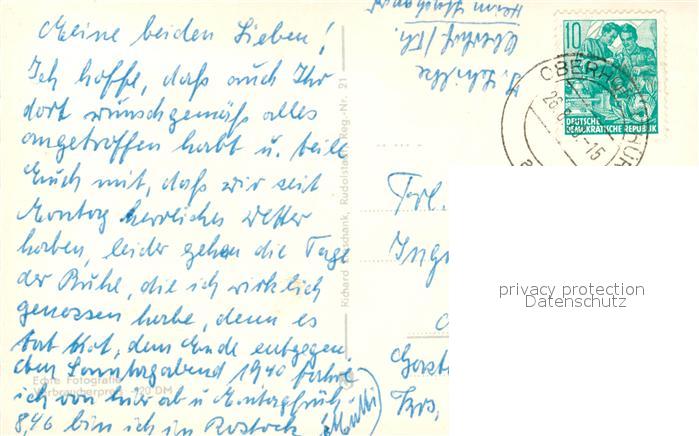 Meine beiden Lieben!
Ich hoffe, daß auch Ihr
dort wunschgemäß alles
angetroffen habt u. teile
Euch mit, daß wir seit
Montag herrliches Wetter
haben, leider gehen die Tage
der Ruhe, die ich wirklich
genossen habe, denn es
tat Not, dem Ende entgegen.
Sonntagabend 19,40 fahre
ich von hier ab u. Montagfrüh
8,46 bin ich in Rostock (Mutti)
Echte Fotografie
Verbraucherpreis -,20 DM
Richard Zieschank, Rudolstadt Reg.-Nr. 21
Oberhof/Th.
10
DEUTSCHE
DEMOKRATISCHE REPUBLIK
OBERHOF THÜR
Frl.
Ing
Krs.
privacy protection
Datenschutz